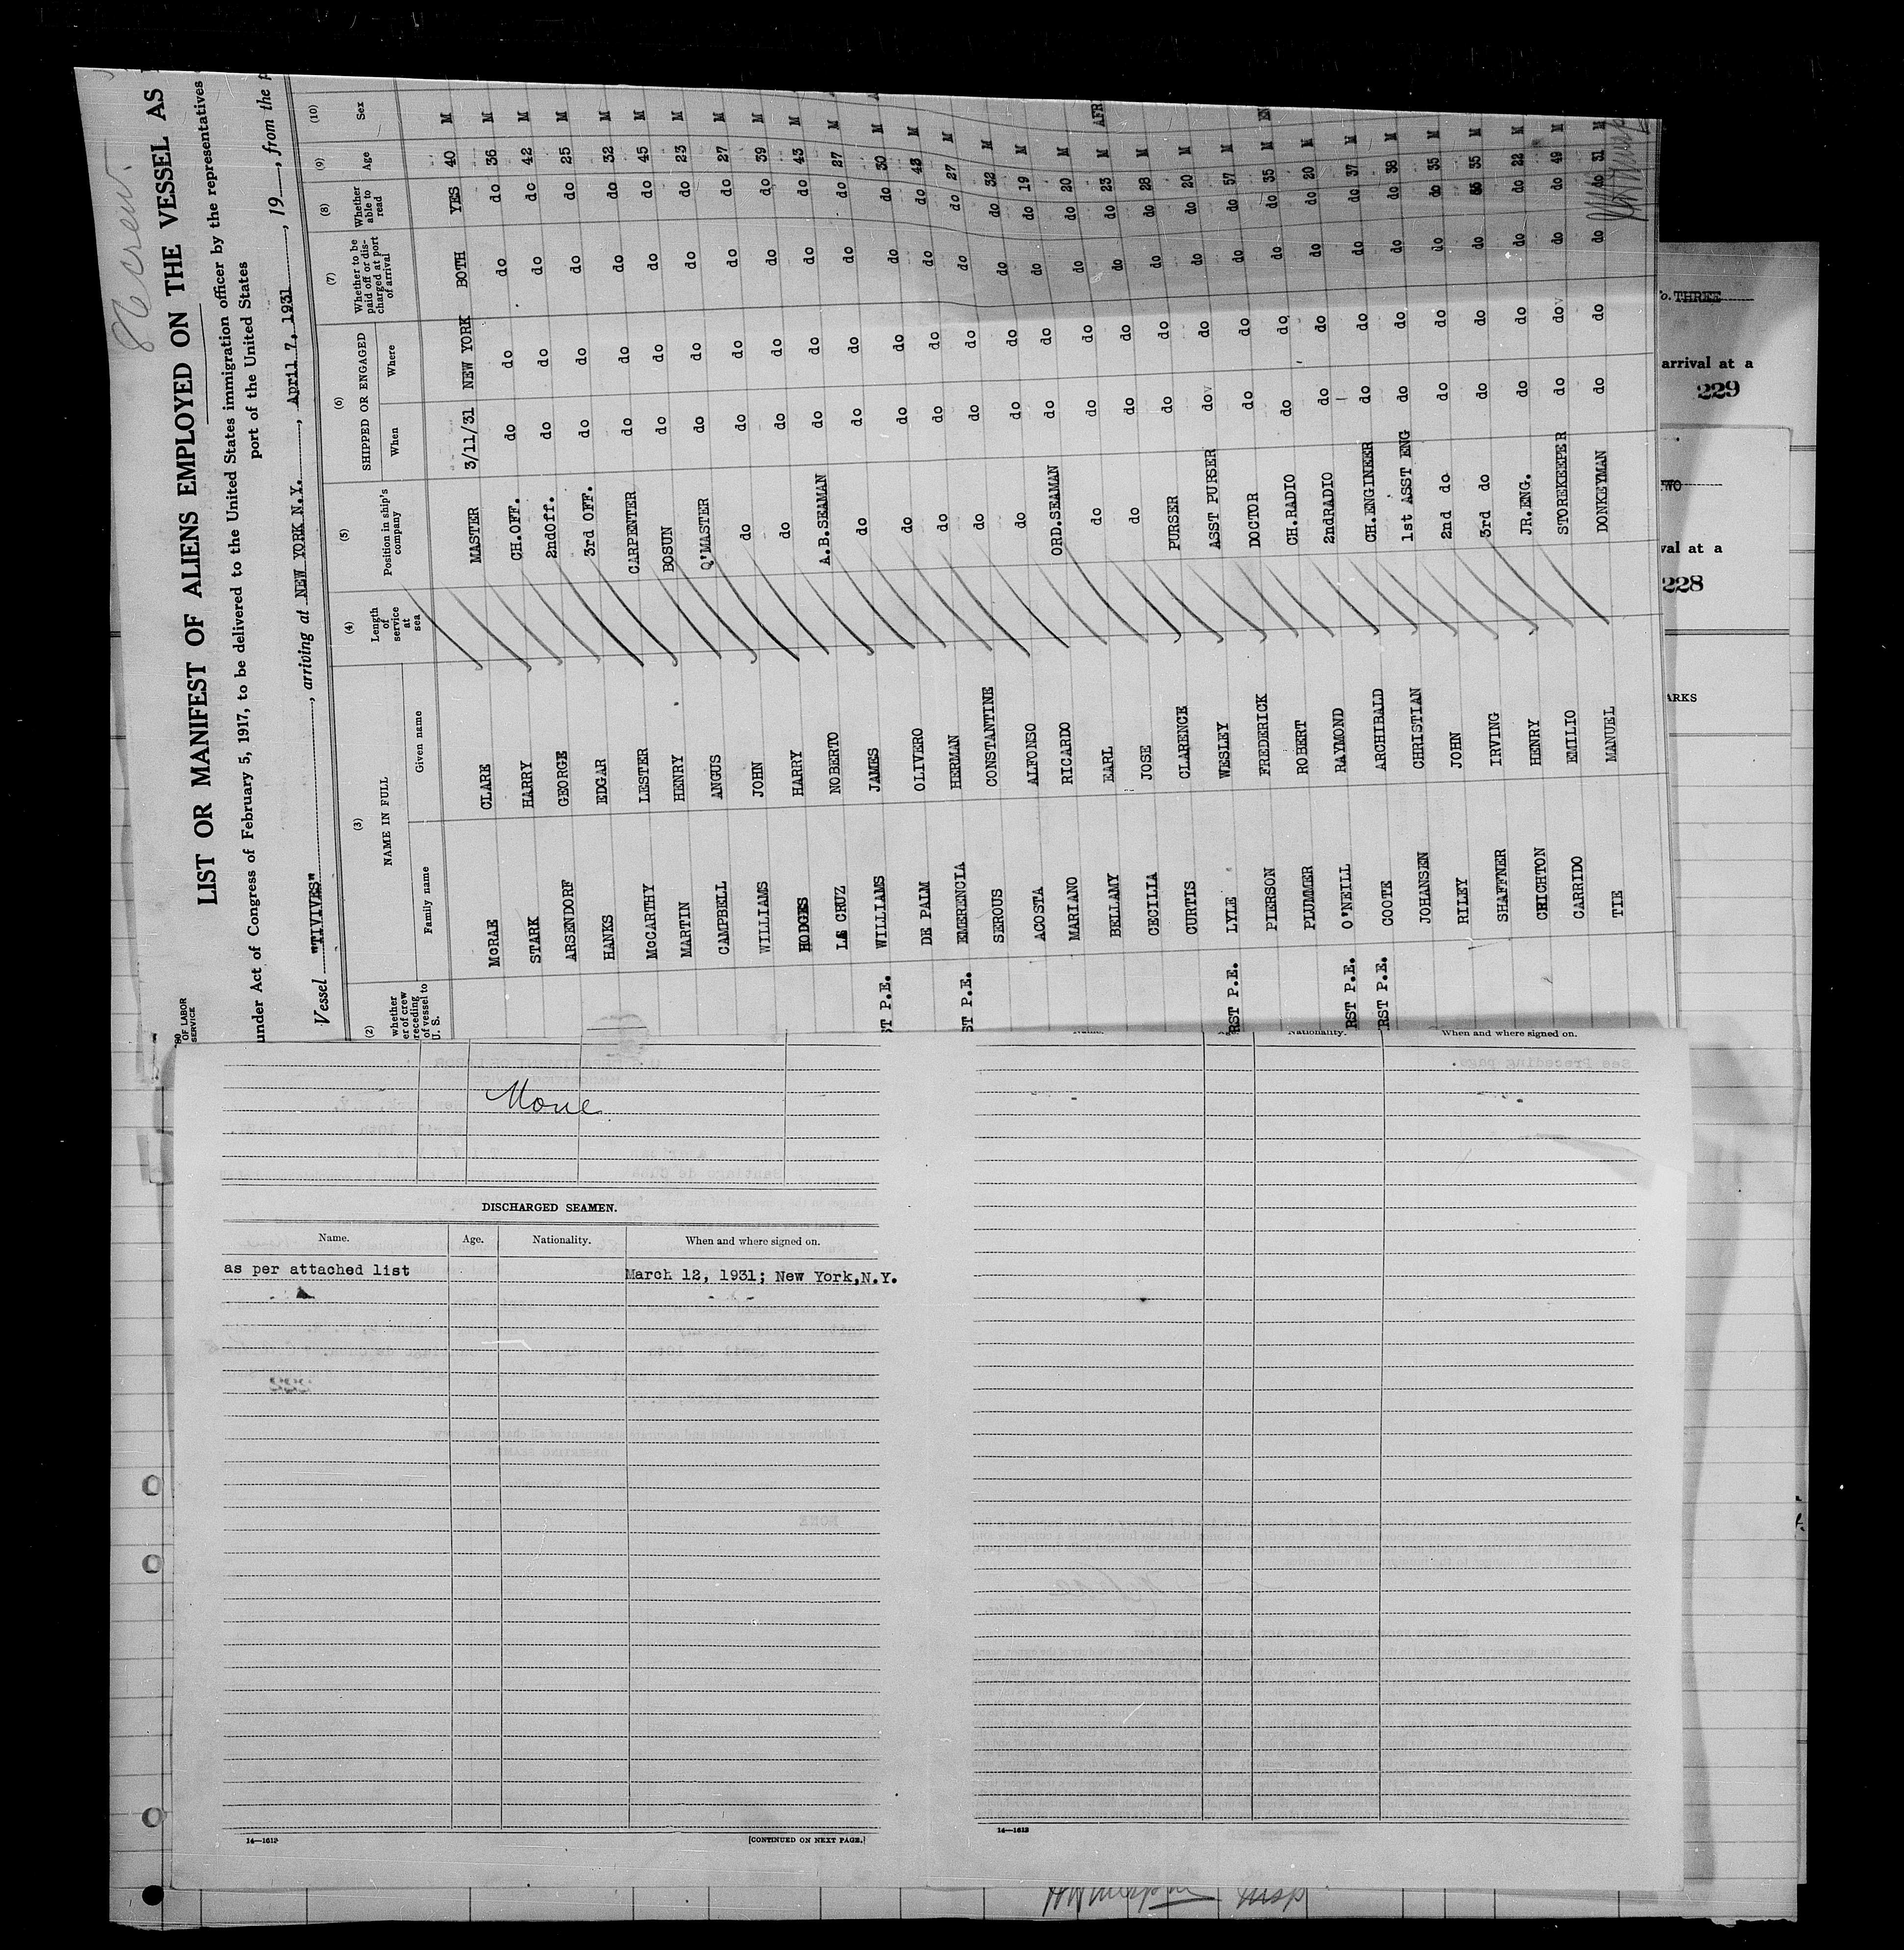 86 crew.
LIST OR MANIFEST OF ALIENS EMPLOYED ON THE VESSEL AS
under Act of Congress of February 5, 1917, to be delivered to the United States immigration officer by the representatives
port of the United States
OF LABOR
SERVICE
Vessel "TIVIVES", arriving at NEW YORK N.Y., April 7, 1931, 19, from the
(2) (3) (4) (5) (6) (7) (8) (9) (10)
whether er of crew receding of vessel to U. S. NAME IN FULL Family name Given name Length of service at sea Position in ship's company SHIPPED OR ENGAGED When Where Whether to be paid off or discharged at port of arrival Whether able to read Age Sex
McRAE CLARE MASTER 3/11/31 NEW YORK BOTH YES 40 M
STARK HARRY CH.OFF. do do do do 36 M
ARSENDORF GEORGE 2ndOff. do do do do 42 M
HANKS EDGAR 3rd OFF. do do do do 25 M
McCARTHY LESTER CARPENTER do do do do 32 M
MARTIN HENRY BOSUN do do do do 45 M
CAMPBELL ANGUS Q'MASTER do do do do 23 M
WILLIAMS JOHN do do do do do 27 M
HODGES HARRY do do do do do 39 M
LA CRUZ NOBERTO A.B.SEAMAN do do do do 43 M
ST P.E. WILLIAMS JAMES do do do do do 27 M
DE PALM OLIVERO do do do do do 30 M
ST P.E. EMERENCIA HERMAN do do do do do 43 M
SEROUS CONSTANTINE do do do do do 27 M
ACOSTA ALFONSO do do do do do 32 M
MARIANO RICARDO ORD.SEAMAN do do do do 19 M
BELLAMY EARL do do do do do 20 M
CECILIA JOSE do do do do do 23 M AFR
CURTIS CLARENCE PURSER do do do do 28 M
RST P.E. LYLE WESLEY ASST PURSER do do do do 20 M
PIERSON FREDERICK DOCTOR do do do do 57 M
PLUMMER ROBERT CH.RADIO do do do do 35 M EN
RST P.E. O'NEILL RAYMOND 2ndRADIO do do do do 20 M
RST P.E. COOTE ARCHIBALD CH.ENGINEER do do do do 37 M
JOHANSEN CHRISTIAN 1st ASST ENG do do do do 38 M
RILEY JOHN 2nd do do do do do 35 M
SHAFFNER IRVING 3rd do do do do 35 M
CRICHTON HENRY JR.ENG. do do do do 22 M
CARRIDO EMILIO STOREKEEPER do do do do 49 M
TIE MANUEL DONKEYMAN do do do do 31 M
o. THREE
arrival at a
229
TWO
val at a
228
ARKS
None
DISCHARGED SEAMEN.
Name. Age. Nationality. When and where signed on.
as per attached list March 12, 1931; New York,N.Y.
14—1612 [CONTINUED ON NEXT PAGE.]
Nationality. When and where signed on.
14—1612